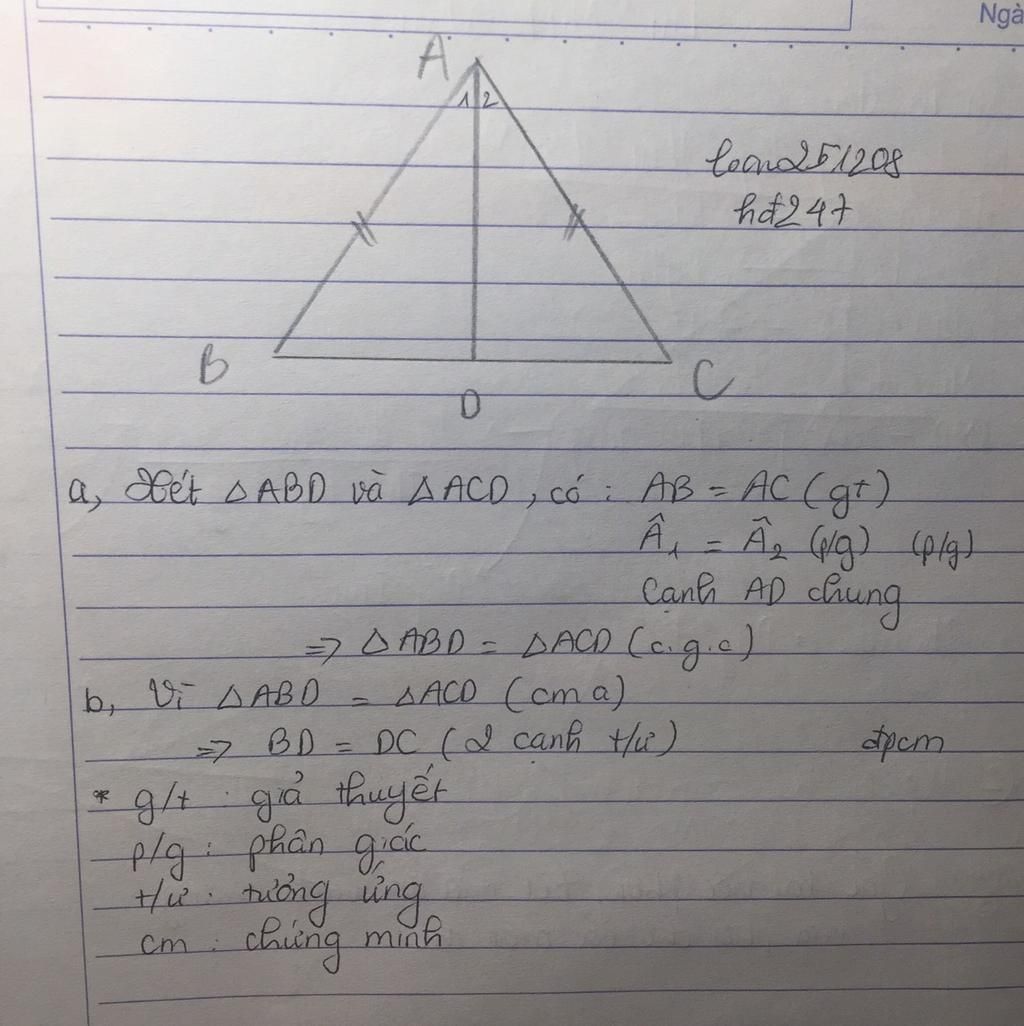 Ngà
A
1 2
loan251208
hđ247
B
D
C
a, Xét △ABD và △ACD, có: AB = AC (gt)
Â₁ = Â₂ (p/g) (p/g)
Cạnh AD chung
=> △ABD = △ACD (c.g.c)
b, Vì △ABD = △ACD (cm a)
=> BD = DC (2 cạnh t/ư) đpcm
* g/t : giả thuyết
p/g : phân giác
t/ư : tưởng ứng
cm : chứng minh